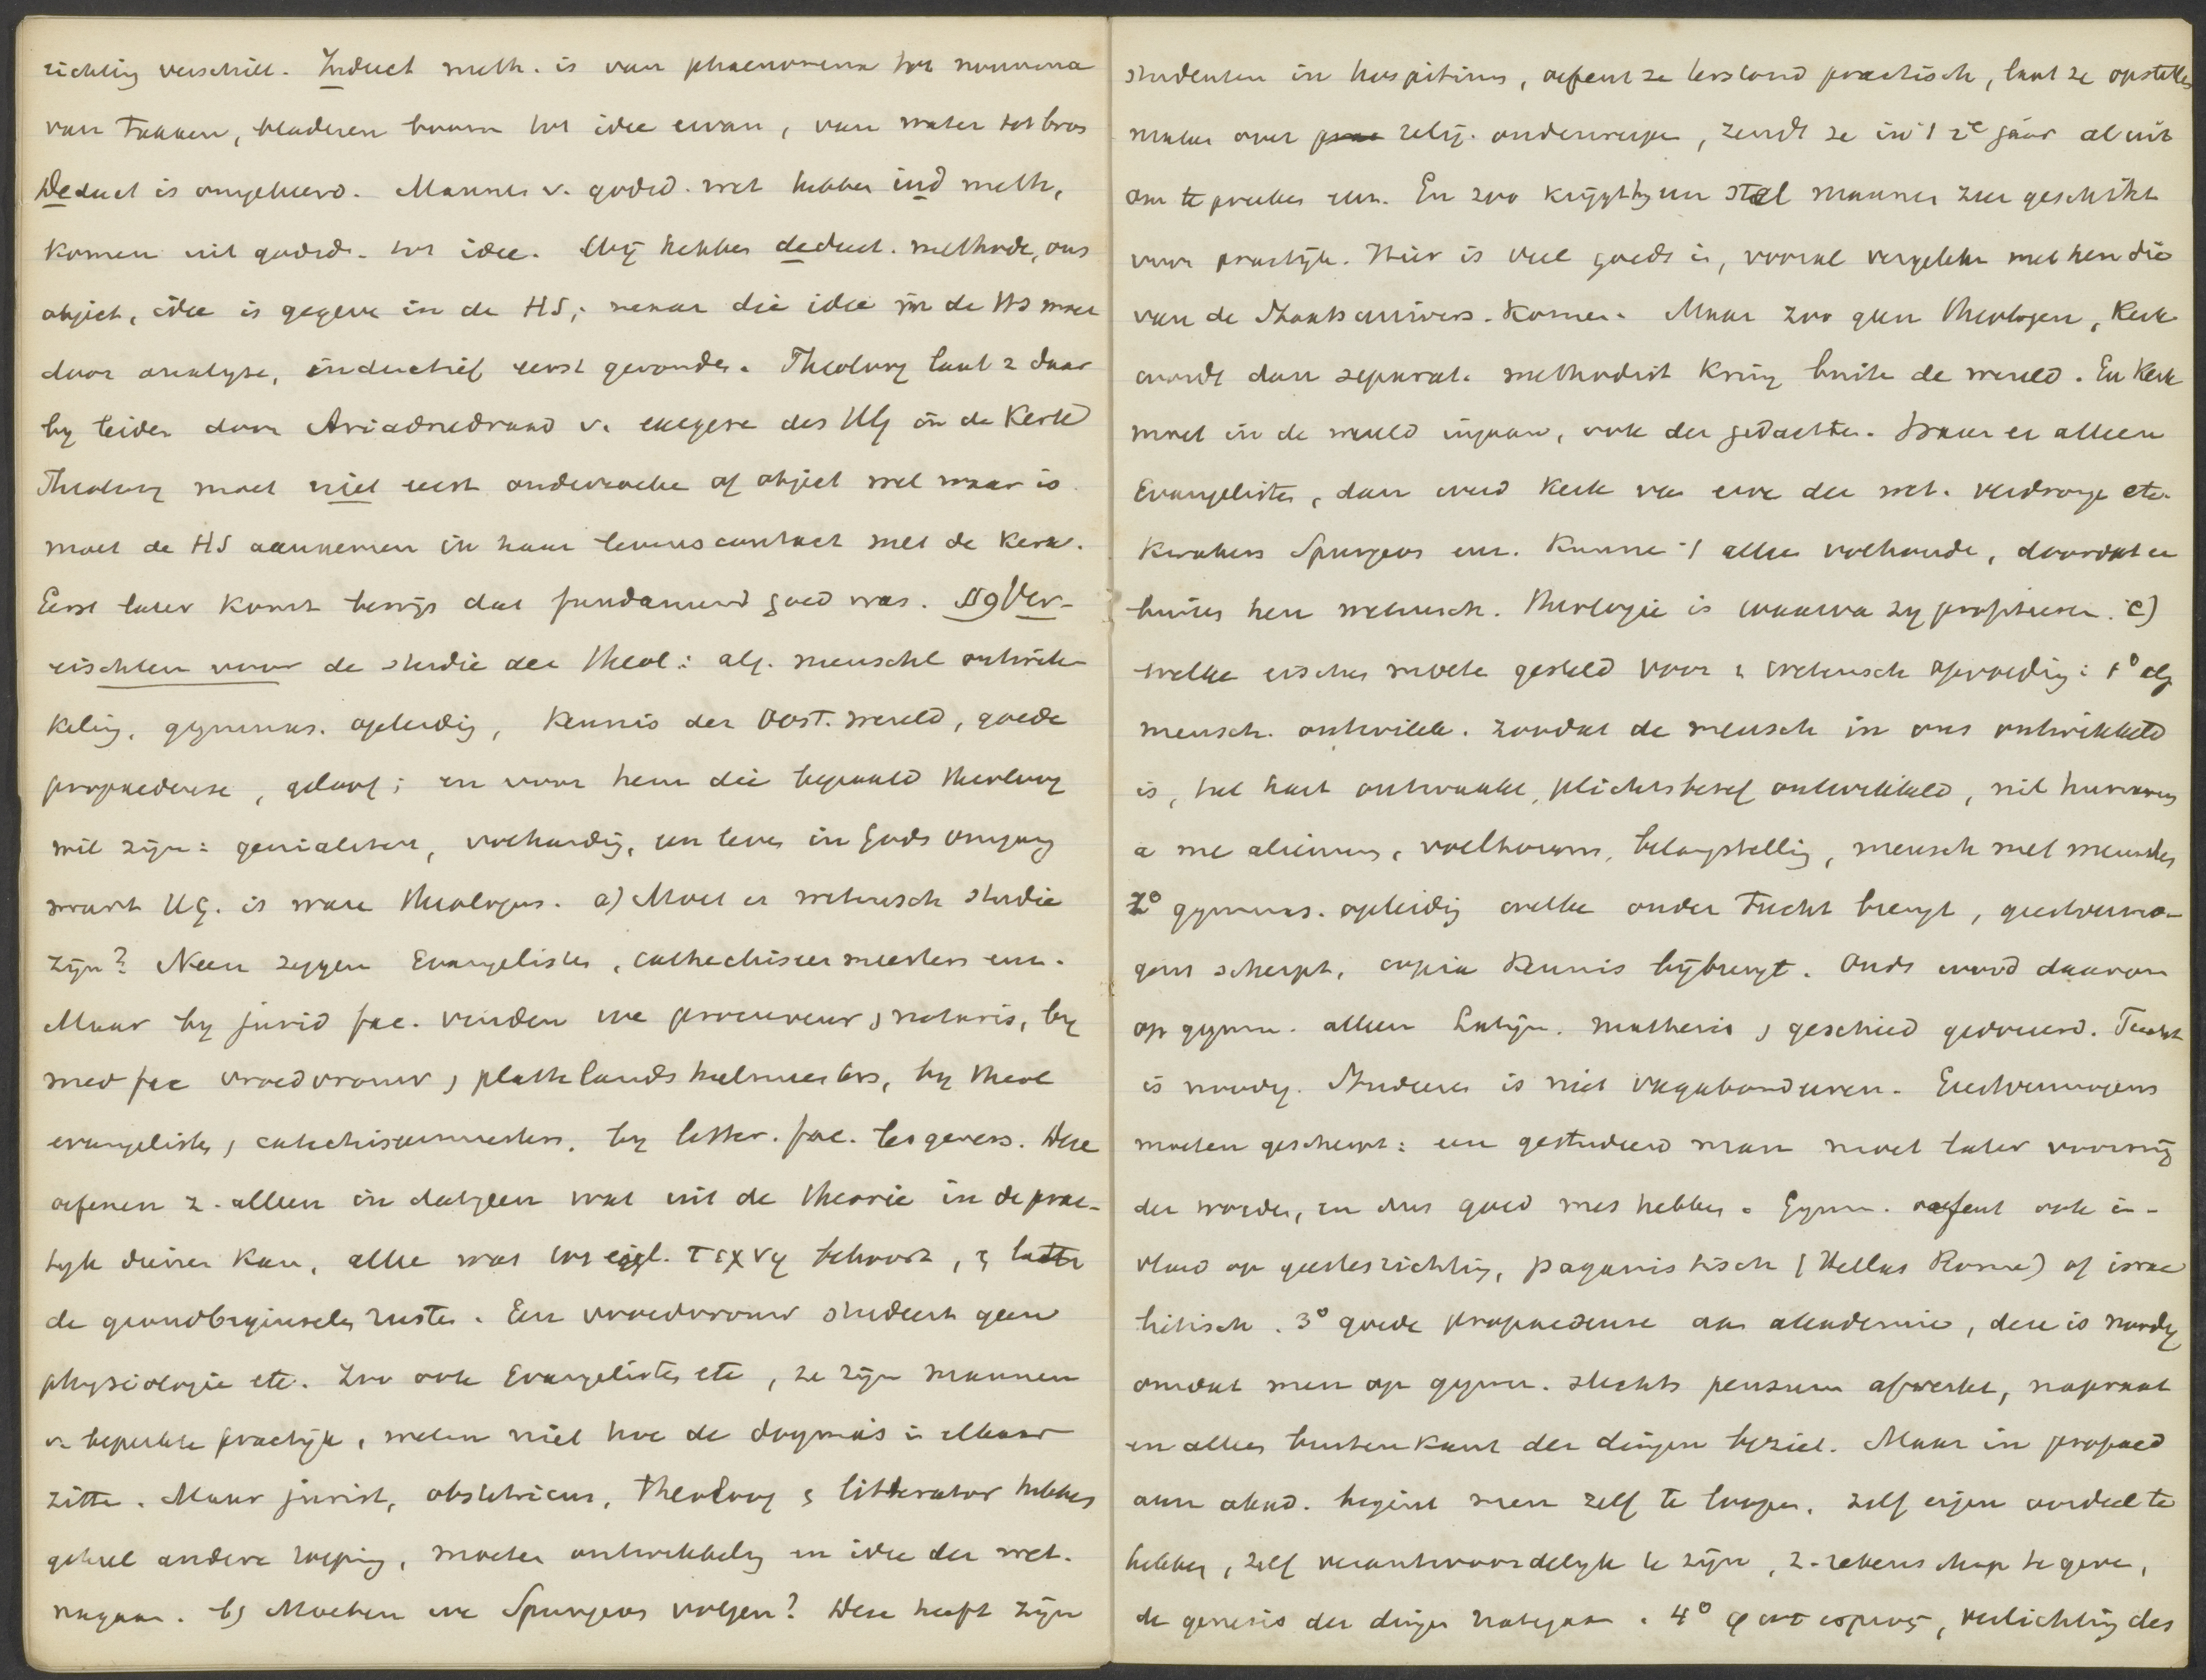 richting verschilt. Induct meth. is van phaenomena tot noumena
van takken, bladeren boom tot idee ervan, van water tot bron
Deduct is omgekeerd. Mannen v. godsd. wet hebben ind meth,
komen uit godsd. tot idee. Wij hebben deduct. methode, ons
object, idee is gegeve in de HS; maar die idee in de HS moet
door analyse, inductief eerst gevonden. Theoloog laat z daar
by leiden door Ariadnedraad v. exegese des HG in de Kerk
Theoloog moet niet eerst onderzoeke of object wel waar is
moet de HS aannemen in haar levenscontact met de Kerk.
Eerst later komt bewijs dat fundament goed was. §9 Ver-
eischten voor de studie der theol: alg. menschel ontwik-
keling, gymnas. opleidig, kennis der Oost. wereld, goede
propaedeuse, geloof; en voor hem die bepaald theoloog
wil zijn: genialiteit, volhardig, een leven in Gods omgang
want HG. is ware theologus. a) Moet er wetensch studie
zijn? Neen zeggen Evangelisten, cathechiseermeesters enz.
Maar by jurid fac. vinden we procureur, notaris, by
med fac vroedvrouw, plattelandsheelmeesters, by theol
evangelisten, catechiseermeesters, by letter. fac. lesgevers. Deze
oefenen z. alleen in datgeen wat uit de theorie in de prac-
tyk dienen kan, alle wat tot eigl. τεχνη behoort, & laten
de grondbeginselen rusten. Een vroedvrouw studeert geen
physiologie etc. Zoo ook Evangelisten etc, ze zijn mannen
v. beperkte practijk, weten niet hoe de dogma's in elkaar
zitten. Maar jurist, obstetricus, theoloog & litterator hebben
geheel andere roeping, moeten ontwikkeling en idee der wet.
nagaan. b) Moeten we Spurgeon volgen? Deze heeft zijn
studenten in hospitium, oefent ze lersland practisch, laat ze opstellen
maken over relig. onderwerpen, zendt ze in 't 2e jaar al uit
om te preeken enz. En zoo krijgt hij een stel mannen zeer geschikt
voor practijk. Hier is veel goeds in, vooral vergeleken met hen die
van de Staatsunivers. komen. Maar zoo geen theologen, Kerk
wordt dan separat. methodist kring buiten de wereld. En Kerk
moet in de wereld ingaan, ook der gedachten. Ware er alleen
Evangelisten, dan werd Kerk van erve der wet. verdronge etc.
Kwakers Spurgeon enz. kunne 't alleen volhoude, doordat er
buiten hen wetensch. theologie is waarva zy profiteren. c)
welke eischen moete gesteld voor 'n wetensch opvoedig: 1° alg
mensch. ontwikk. zoodat de mensch in ons ontwikkeld
is, het hart ontwaakt, plichtsbesef ontwikkeld, nil humanum
a me alienum, weltwoons, belangstellig, mensch met menschen
2° gymnas. opleidig welke onder tucht brengt, geestvermo-
gens scherpt, copia kennis bijbrengt. Ouds werd daarom
op gymn. alleen Latijn, mathesis, geschied gedoceerd. Tucht
is noodig. Studeeren is niet vagabondeeren. Geestvermogens
moeten gescherpt: een gestudeerd man moet later voorwaa-
der worden, en dus goed mes hebben. Gymn. oefent ook in-
vloed op geestesrichting, paganistisch (Hellas Rome) of israe
litisch. 3° goede propaedeuse aan akademie, deze is noodig
omdat men op gymn. slechts pensum afwerkt, napraat
en alleen buitenkant der dingen beziet. Maar in propaed
aan akad. begint men zelf te loopen, zelf eigen oordeel te
hebben, zelf verantwoordelijk te zijn, z. rekenschap te geven,
de genesis der dingen nategaan. 4° φωτισμος, verlichting des